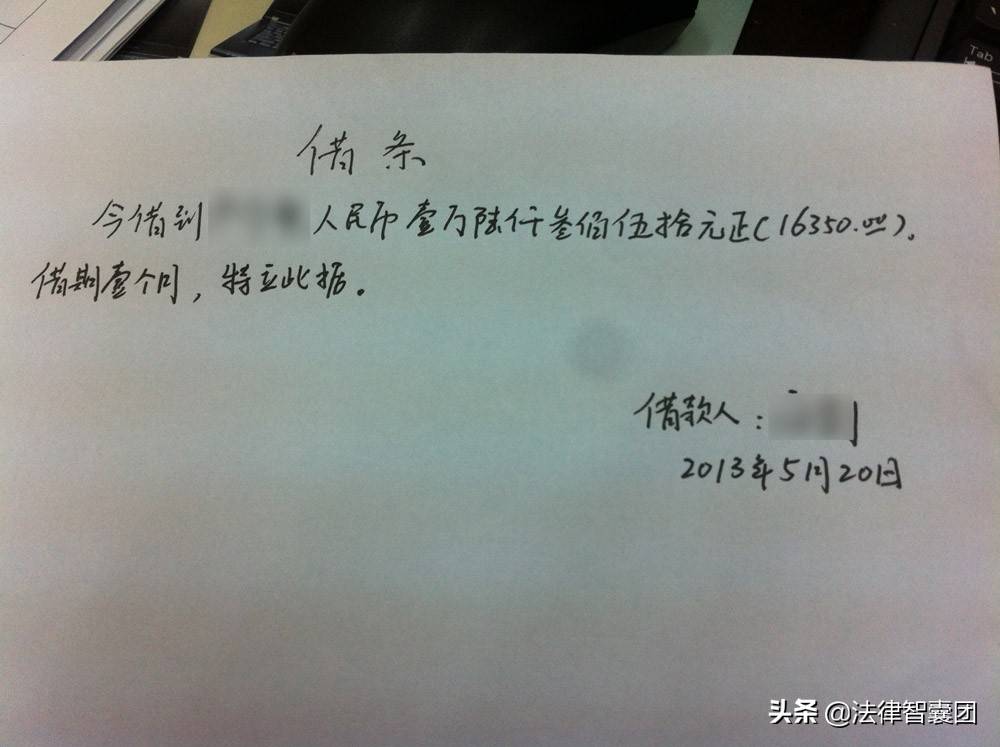 Tab
借条
今借到 人民币壹万陆仟叁佰伍拾元正(16350.00)。
借期壹个月，特立此据。
借款人：
2013年5月20日
头条 @法律智囊团